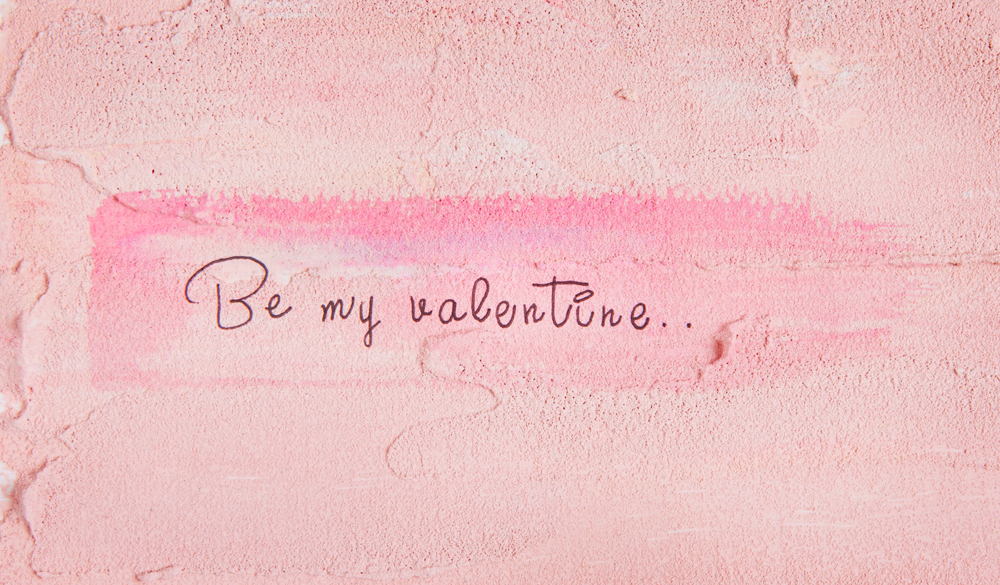 Be my valentine..